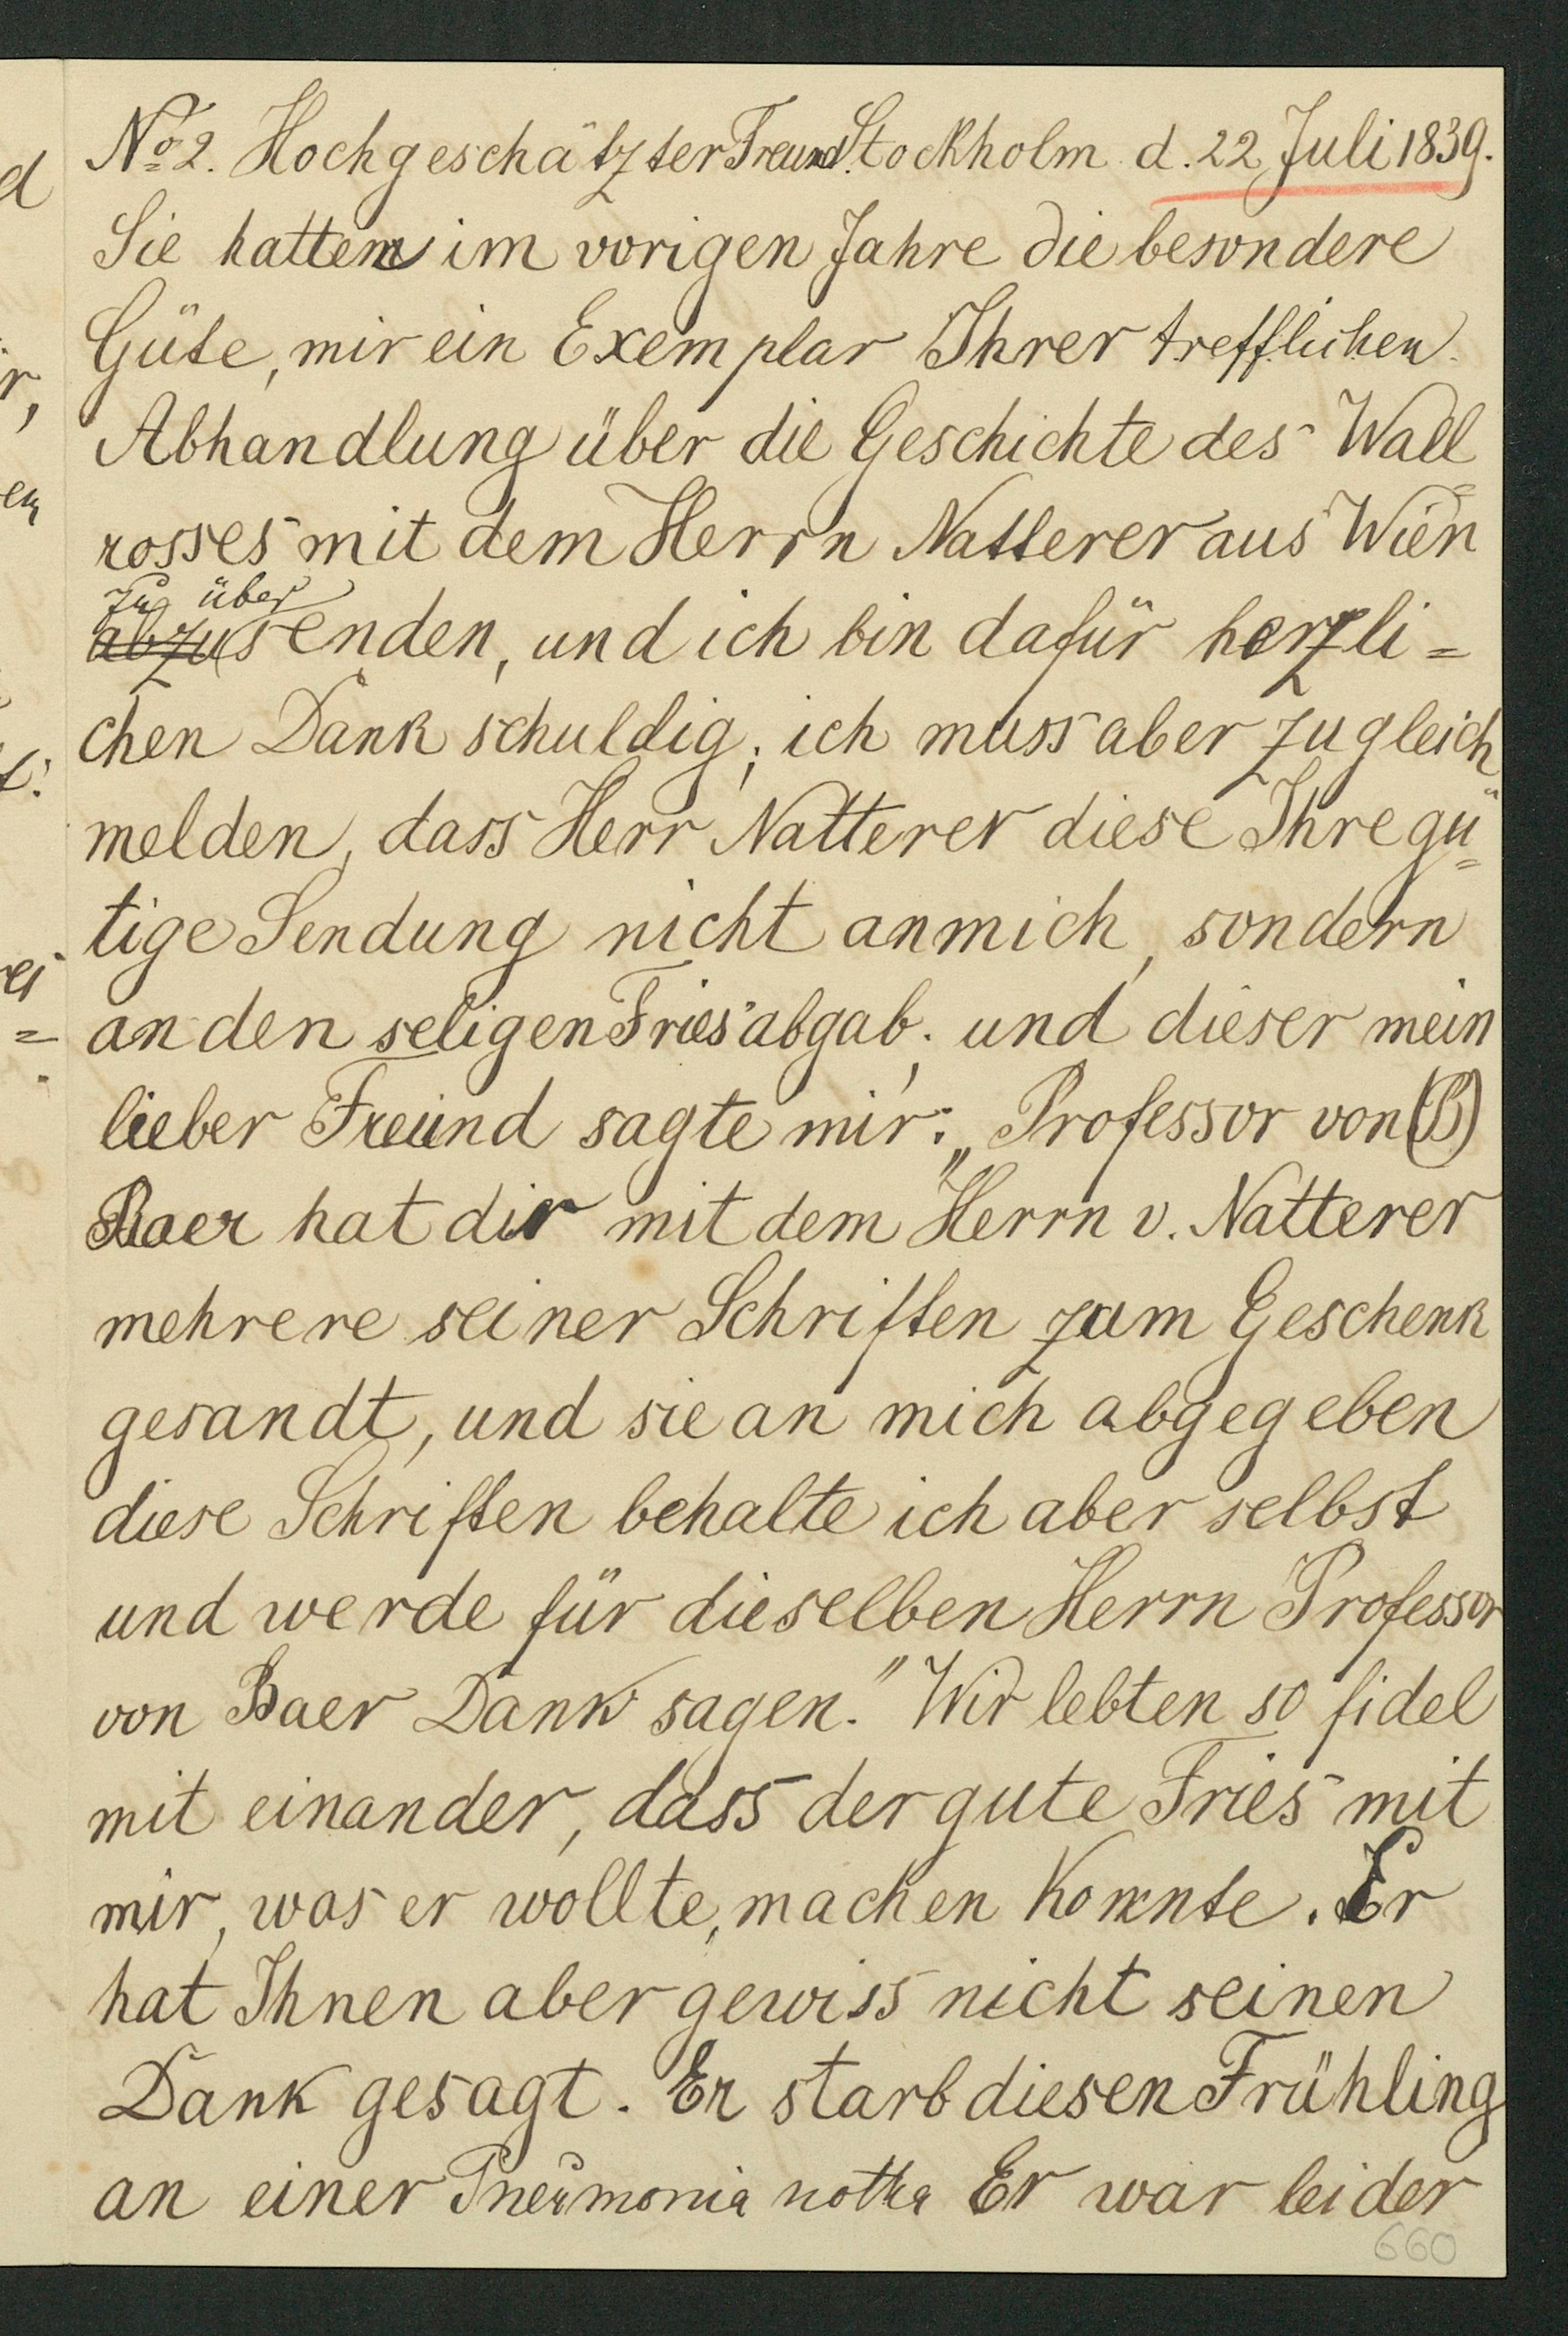 No 2. Hochgeschätzter Freund. Stockholm d. 22 Juli 1839.
Sie hatten im vorigen Jahre die besondere
Güte, mir ein Exemplar Ihrer trefflichen
Abhandlung über die Geschichte des Wall=
rosses mit dem Herrn Natterer aus Wien
zu über
abzusenden, und ich bin dafür herzli=
chen Dank schuldig; ich muss aber zugleich
melden, dass Herr Natterer diese Ihre gü=
tige Sendung nicht an mich, sondern
an den seligen Fries abgab; und dieser mein
lieber Freund sagte mir: „Professor von (B)
Baer hat dir mit dem Herrn v. Natterer
mehrere seiner Schriften zum Geschenk
gesandt, und sie an mich abgegeben
diese Schriften behalte ich aber selbst
und werde für dieselben Herrn Professor
von Baer Dank sagen." Wir lebten so fidel
mit einander, dass der gute Fries mit
mir, was er wollte, machen konnte. Er
hat Ihnen aber gewiss nicht seinen
Dank gesagt. Er starb diesen Frühling
an einer Pneumonia notha Er war leider
660